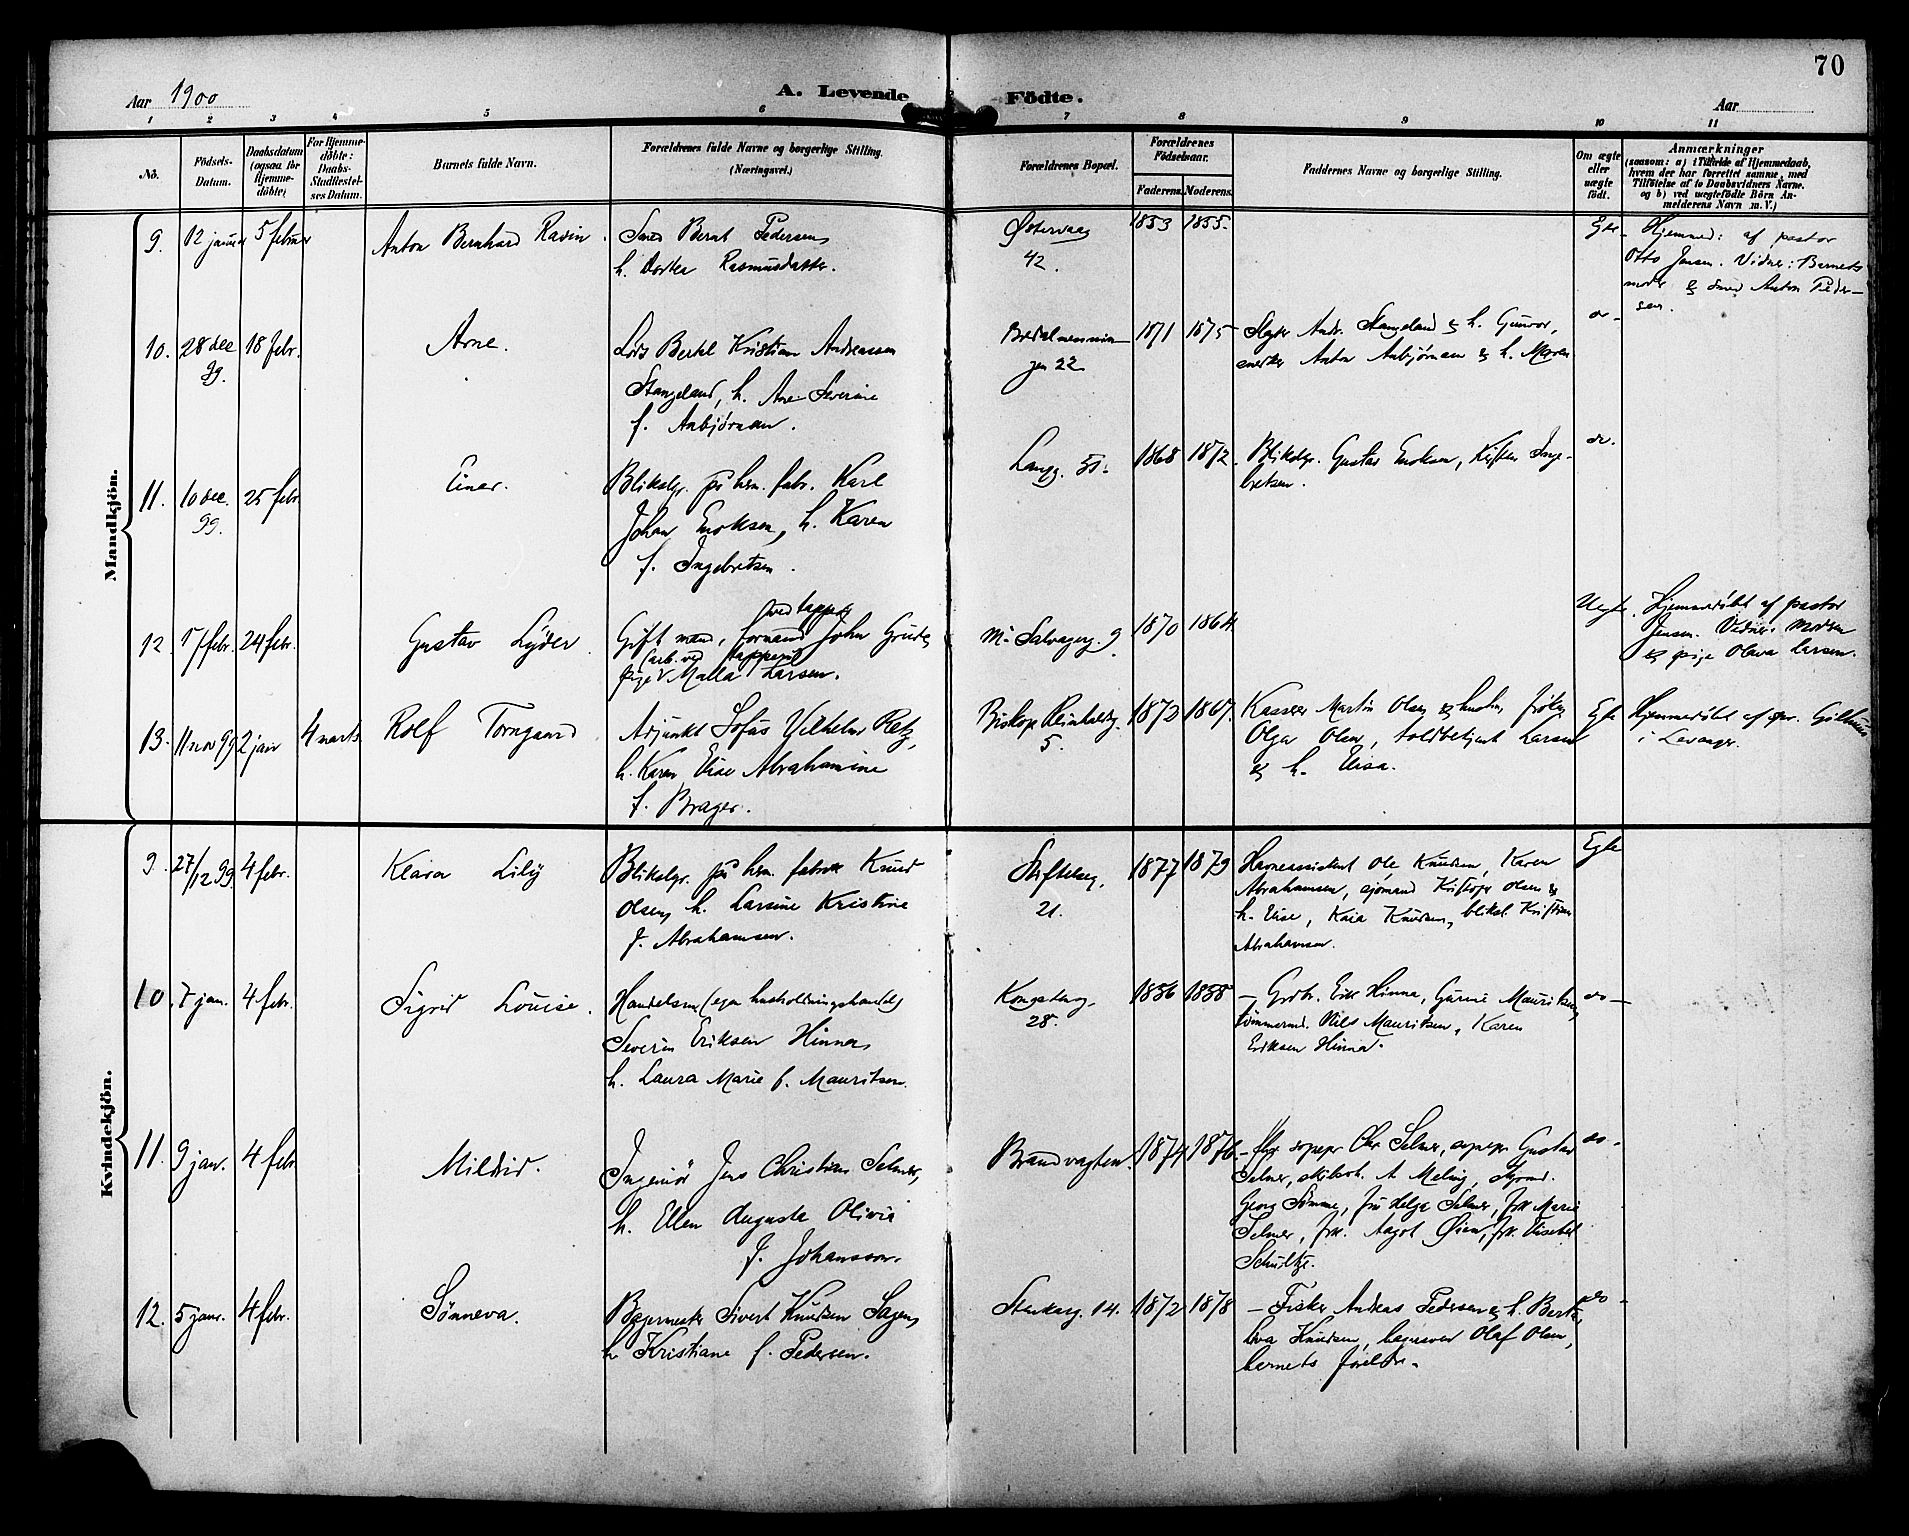 70
Aar 1900
A. Levende
Födte.
Aar
1 2 3 4 5 6 7 8 9 10 11
No.
Födsels-
Datum.
Daabsdatum
(ogsaa for
Hjemme-
döbte)
For Hjemme-
döbte:
Daabs-
Stadfæstel-
ses Datum.
Barnets fulde Navn.
Forældrenes fulde Navne og borgerlige Stilling.
(Næringsvei.)
Forældrenes Bopæl.
Forældrenes
Födselsaar.
Faderens. Moderens.
Faddernes Navne og borgerlige Stilling.
Om ægte
eller
uægte
födt.
Anmærkninger
(saasom: a) i Tilfælde af Hjemmedaab,
hvem der har forrettet samme, med
Tilföielse af to Daabsvidners Navne.
og b) ved uægtefödte Börn An-
melderens Navn m. V.)
Mandkjön.
9. 12 januar 5 februar
Anton Bernhard Ravin.
Smed Bernt Pedersen,
h. Dortea Rasmusdatter.
Østervaag
42.
1853 1855.
Egte
Hjemmed: af pastor
Otto Jensen. Vidner: Barnets
moder & smed Anton Peder-
sen.
10. 28 dec 99. 18 febr.
Arne.
Lods Bertel Kristian Andreassen
Stangeland, h. Ane Severine
f. Asbjørnsen.
Bredalmennin-
gen 22
1871 1875
Andr. Stangeland & h. Gunvor,
snedker Anton Asbjørnsen & h. Maren
do -
11. 10 dec. 99. 25 febr
Einar.
Blikslgr. på herm. fabr. Karl
Johan Enoksen, h. Karen
f. Ingebretsen.
Langg. 51.
1868 1872.
Blikslgr. Gustav Enoksen, Kirsten Inge-
bretsen.
do.
12. 17 febr. 24 febr.
Gustav Lyder.
Gift mand, formand John Grude,
(arb. ved tapperi)
Pige Malla Larsen.
M. Salvagerg. 9.
1870 1864
Uegte.
Hjemmedøbt af pastor
Jensen. Vidner: Moderen
& pige Olava Larsen.
13. 11 nov 99 2 jan 4 marts
Rolf Torngaard
Adjunkt Sofus Vilhelm Retz,
h. Karen Elise Abrahamine
f. Brager.
Biskop Reinaldsg.
5.
1872 1867.
Kasserer Martin Olsen & hustru, frøken
Olga Olsen, toldbetjent Larsen
& h. Elisa.
Egte
Hjemmedøbt af
i Levanger.
Kvindekjön.
9. 27/12 99 4 febr.
Klara Lily
Blikslgr. på herm. fabrik Knud
Olsen, h. Larsine Kristine
f. Abrahamsen.
Stiftelseg.
21.
1877 1879
Havneassistent Ole Knudsen, Karen
Abrahamsen, sjømand Kristofer Olsen &
h. Elise, Kaia Knudsen, bliksl. Kristian
Abrahamsen.
Egte
10. 7 jan. 4 febr.
Sigrid Louise.
Handelsm. (egen husholdningshandel)
Severin Eriksen Hinna,
h. Laura Marie f. Mauritsen.
Kongsberg-
28.
1856 1858
- Grdbr. Erik Hinna, Gurine Mauritsen,
tømmermd. Nils Mauritsen, Karen
Eriksen Hinna.
do -
11. 9 jan. 4 febr
Mildrid.
Ingeniør Jens Christian Selmer,
h. Ellen Augusta Olivia
f. Johansson.
Brandvagten.
1874 1876.
Chr Selmer, Gustav
Selmer, skibsrh. A Meling,
Georg Sømme, fru Helga Selmer, frk Marie
Selmer, frk. Aagot Øien, frk. Elisabet
Schultze.
do -
12. 5 janr. 4 febr.
Sønneva.
Bagermester Sivert Knudsen Sagen,
h Kristiane f. Pedersen.
Stenkarg. 14.
1872 1878
- Fisker Andreas Pedersen & h. Berta,
Eva Knudsen, bagersvend Olaf Olsen,
barnets foreldre.
do -